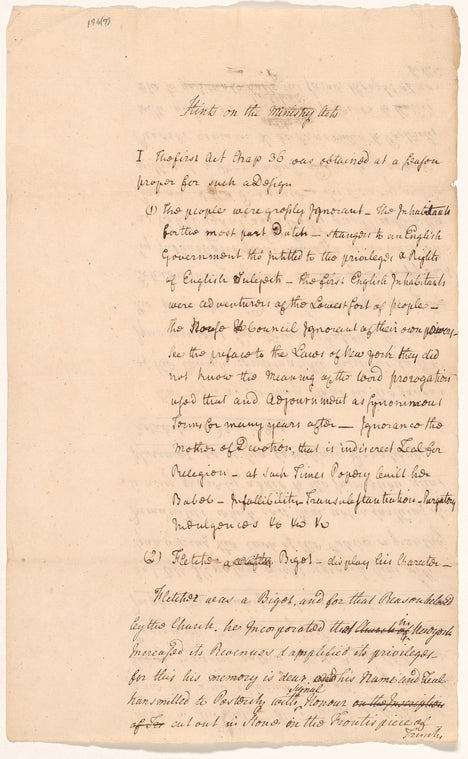 194(7)
Hints on the Ministry Acts
I The first Act Chap 36 was obtained at a Season
proper for such a Design
(1) The people were grossly Ignorant – The Inhabitants
for the most part Dutch – strangers to an English
Government tho Intitled to the privileges & Rights
of English Subjects – The first English Inhabitants
were adventurers of the Lowest sort of people –
The House & Council Ignorant of their own powers –
See the preface to the Laws of New York they did
not know the Meaning of the word prorogation
used that and Adjournment as Synonimous
Terms for many years after — Ignorance the
Mother of Devotion, that is indiscreet Zeal for
Religion – at such Times Popery built her
Babel – Infallibility Transubstantiation – Purgatory
Indulgences &c &c &c
(2) Fletcher a Biget – display his Charecter –
Fletcher was a Biget, and for that Reason beloved
by the Church, he Incorporated that Church in New york
Increased its Revenues & amplified its privileges
for this his memory is dear and his Name and Seal
transmitted to Posterity with signal Honour on the Inscription
of cut out in Stone on the Frontispiece of
Trinity